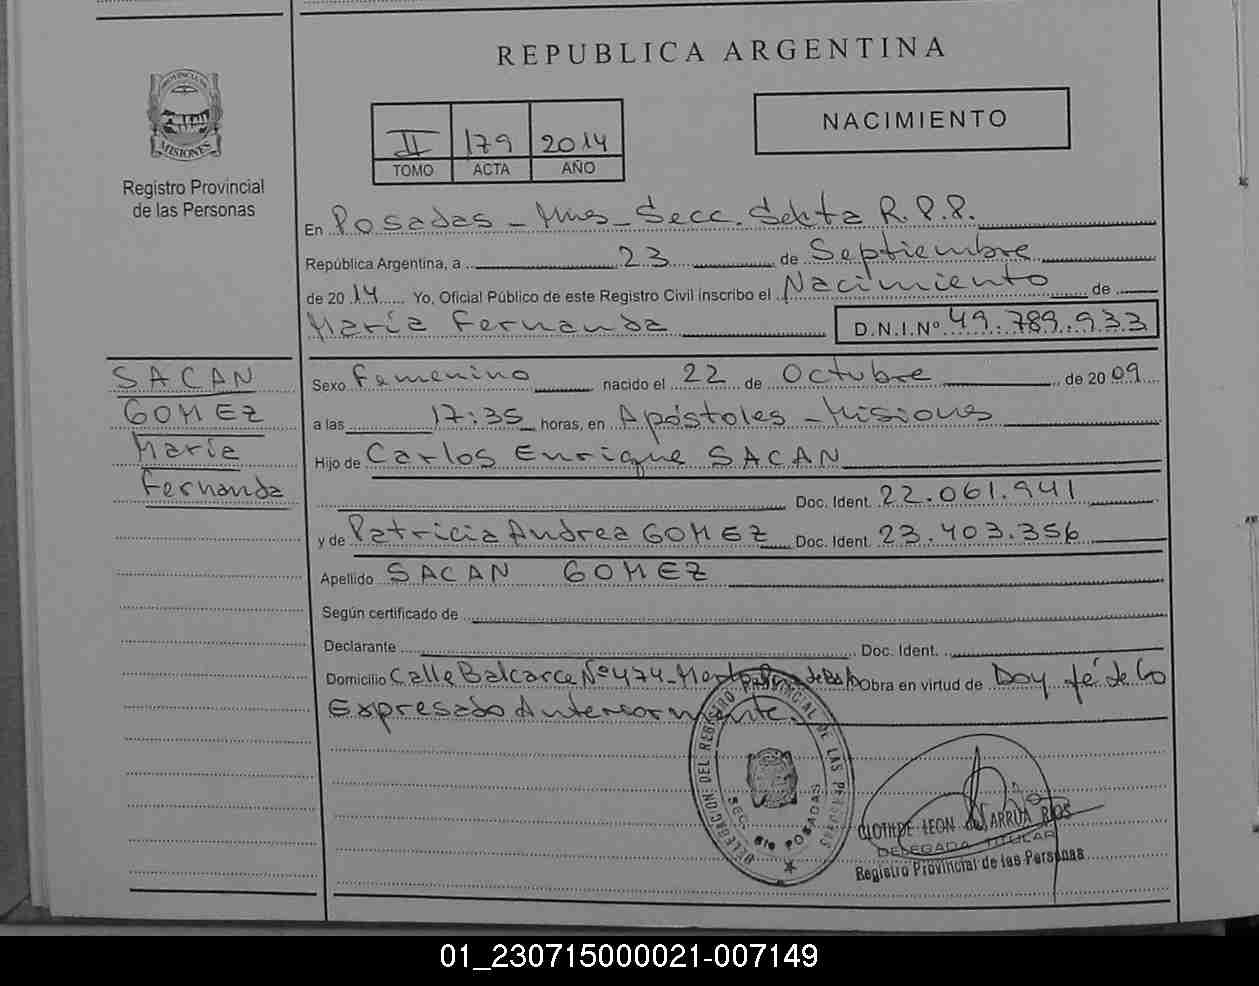 REPUBLICA ARGENTINA
PROVINCIA DE
MISIONES
Registro Provincial
de las Personas
II 179 2014
TOMO ACTA AÑO
NACIMIENTO
En Posadas - Mnes - Secc. Sexta R.P.P.
República Argentina, a 23 de Septiembre
de 2014 Yo, Oficial Público de este Registro Civil inscribo el Nacimiento de
María Fernanda D.N.I.Nº 49.789.933
SACAN
GOMEZ
María
Fernanda
Sexo Femenino nacido el 22 de Octubre de 2009
a las 17:35 horas, en Apóstoles - Misiones
Hijo de Carlos Enrique SACAN
Doc. Ident. 22.061.941
y de Patricia Andrea GOMEZ Doc. Ident. 23.403.356
Apellido SACAN GOMEZ
Según certificado de
Declarante Doc. Ident.
Domicilio Calle Balcarce Nº 474 - Obra en virtud de Doy fé de lo
Expresado Anteriormente.
DELEGACION DEL REGISTRO PROVINCIAL DE LAS PERSONAS
SEC. 6ta POSADAS
CLOTILDE LEON de SARRUA RIOS
DELEGADA TITULAR
Registro Provincial de las Personas
01_230715000021-007149